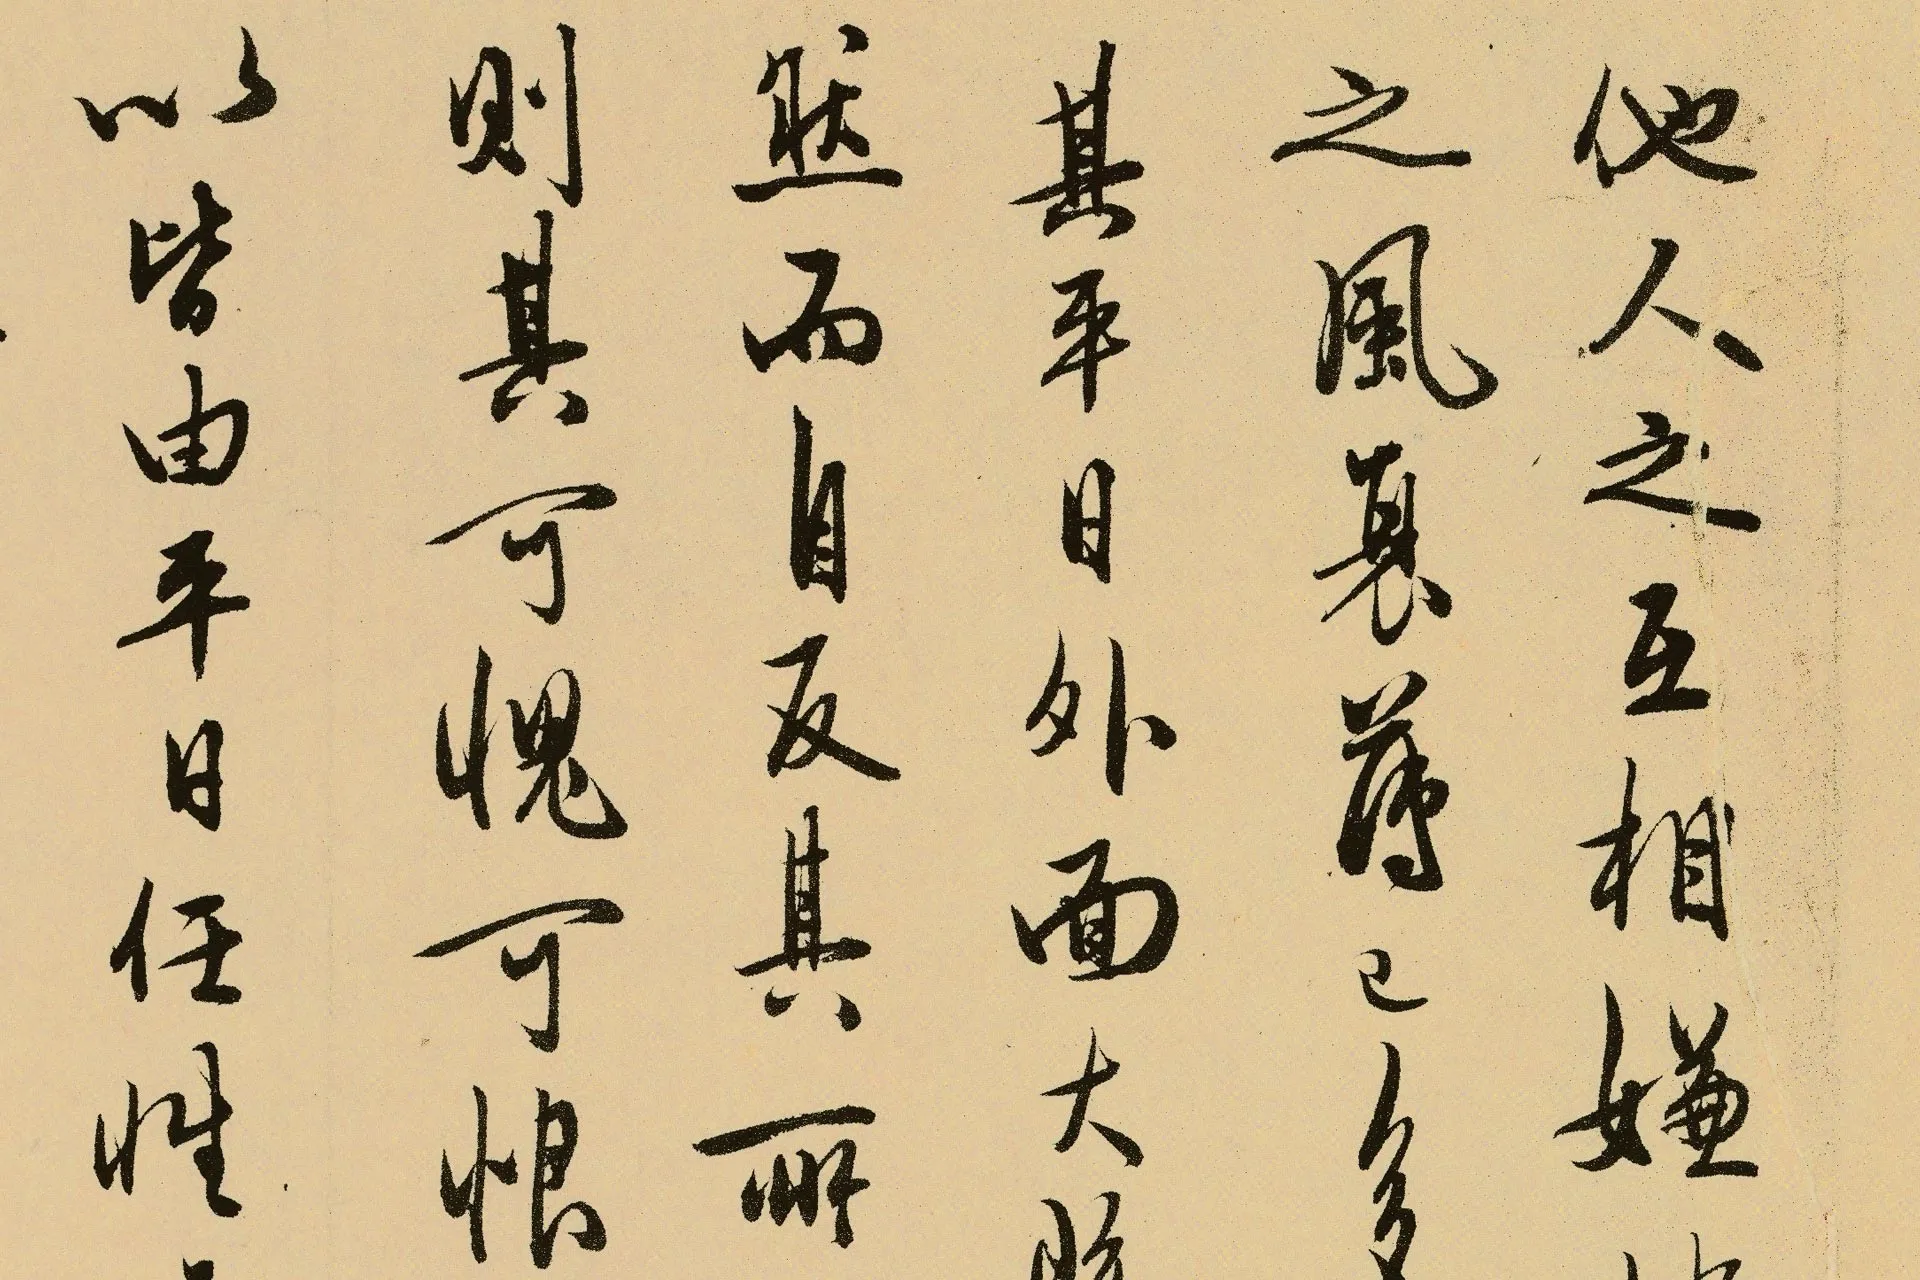 他人之互相嫌
之風衰薄已多
其平日外面大
然而自反其所
則其可愧可恨
以皆由平日任性